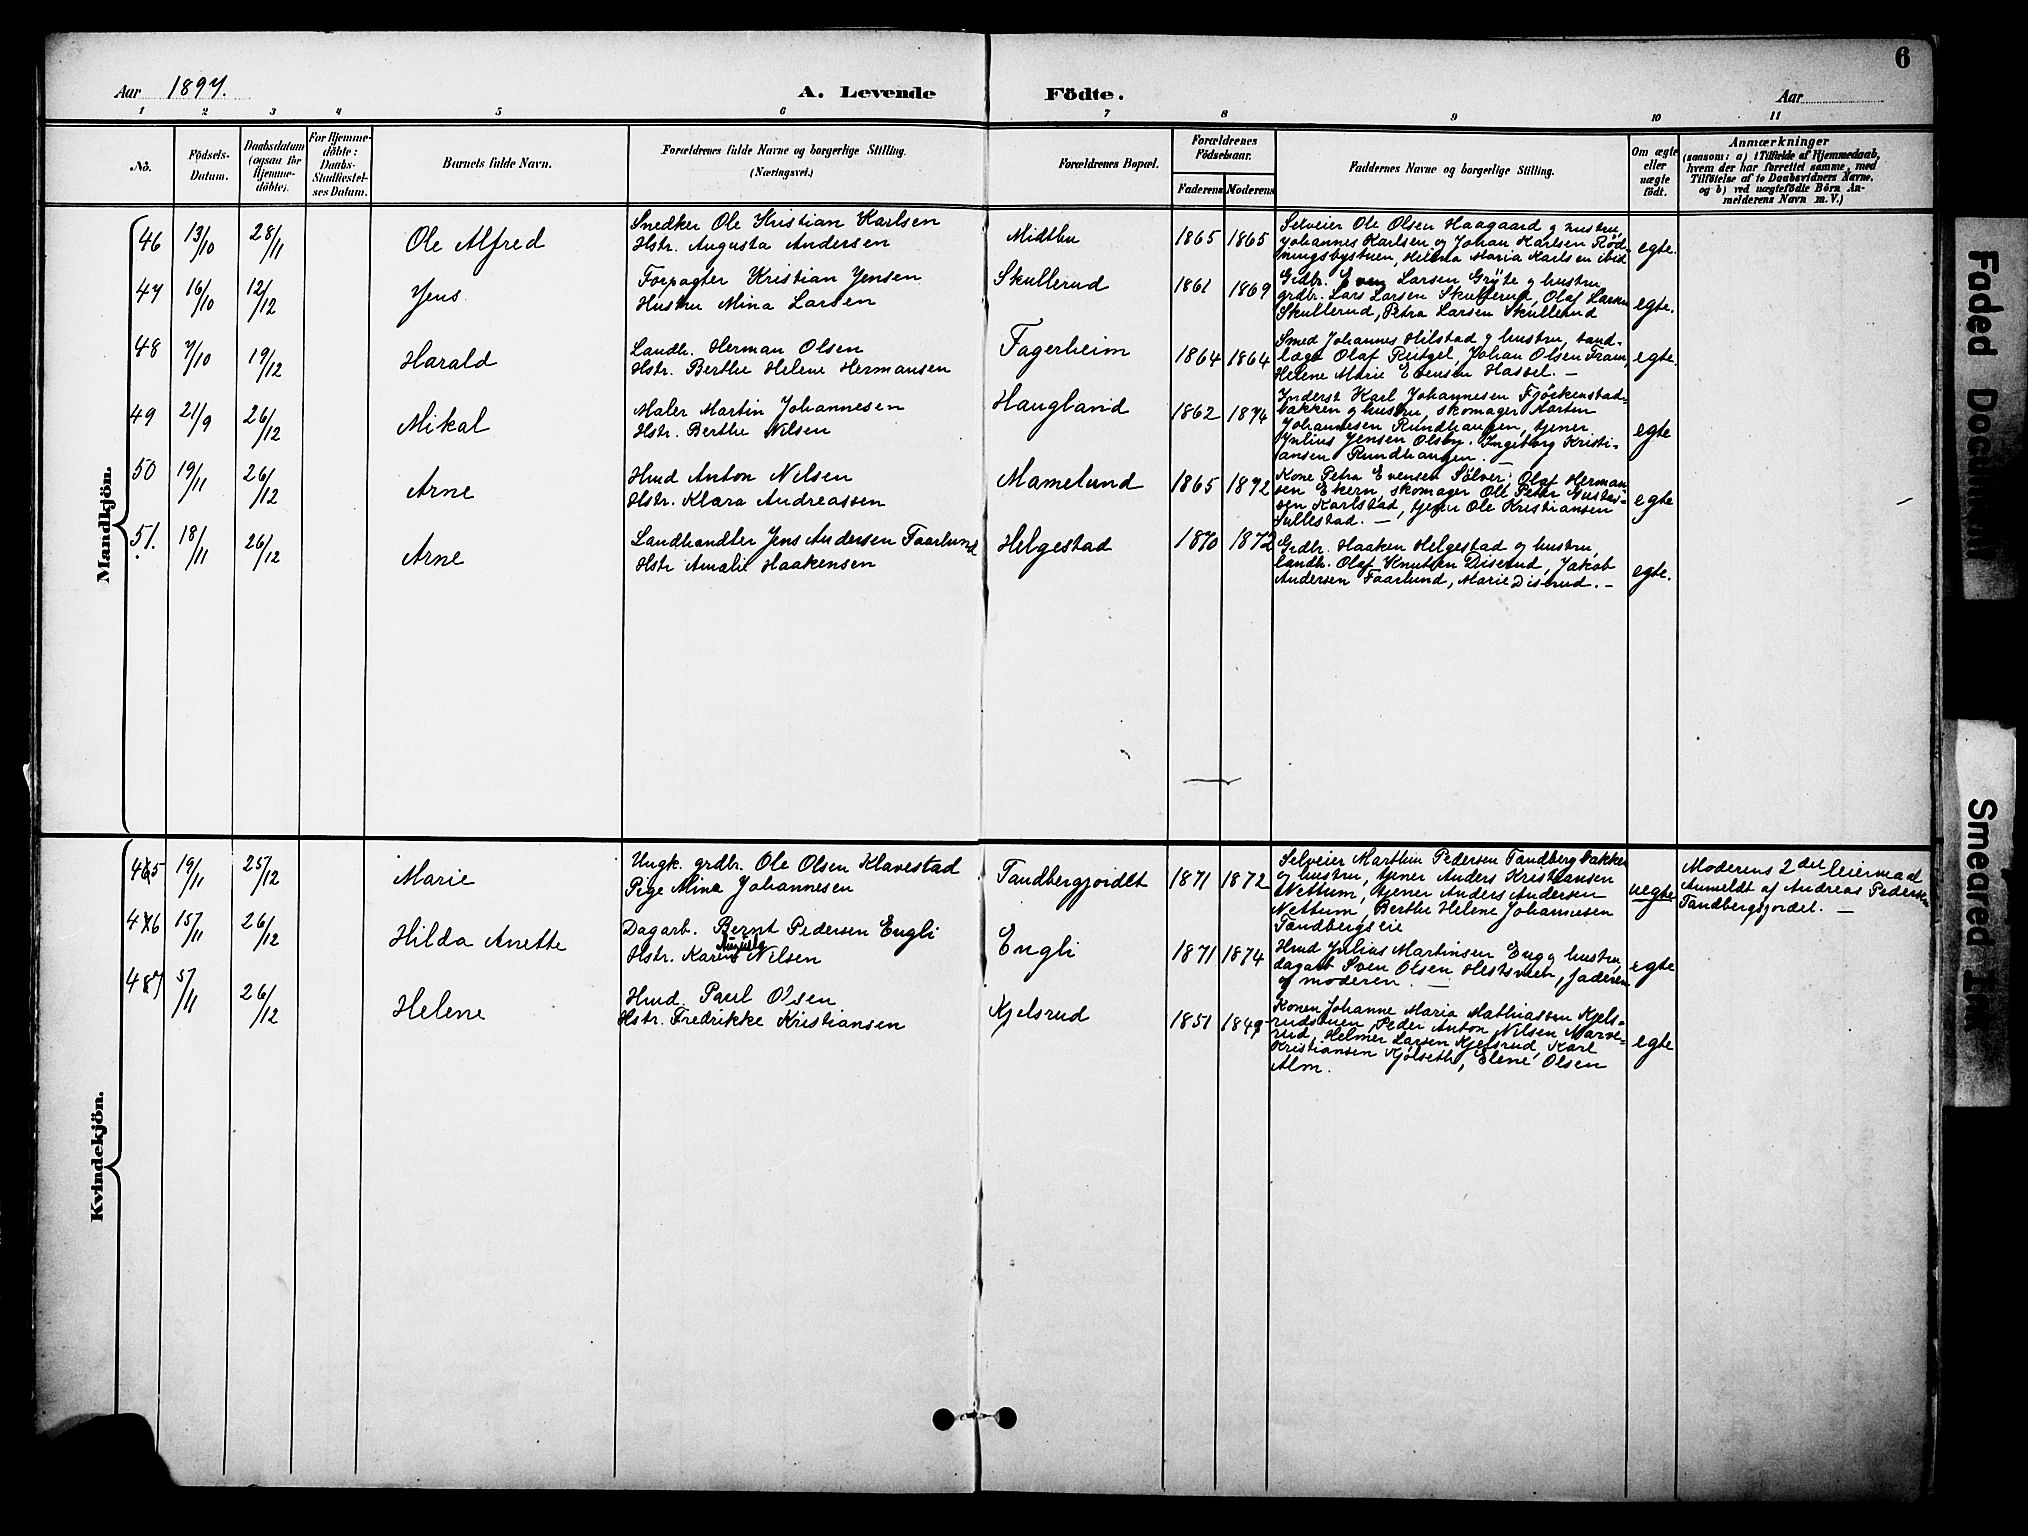 6
Aar 1897.
A. Levende Födte.
Aar
1 2 3 4 5 6 7 8 9 10 11
No.
Födsels-Datum.
Daabsdatum (ogsaa for Hjemmedöbte).
For Hjemmedöbte: Daabs-Stadfæstelses Datum.
Barnets fulde Navn.
Forældrenes fulde Navne og borgerlige Stilling.
(Næringsvei.)
Forældrenes Bopæl.
Forældrenes Födselsaar.
Faderens Moderens
Faddernes Navne og borgerlige Stilling.
Om ægte eller uægte födt.
Anmærkninger
(saasom: a) i Tilfælde af Hjemmedaab,
hvem der har forrettet samme, med
Tilföielse af to Daabsvidners Navne,
og b) ved uægtefödte Börn Anmelderens Navn m. V.)
Mandkjön.
46 13/10 28/11 Ole Alfred
Snedker Ole Kristian Karlsen
Hstr. Augusta Andersen
Midtbu 1865 1865
Selveier Ole Olsen Haagaard og hustru,
Johannes Karlsen og Johan Karlsen Rød-
ningsbystuen, Helena Maria Karlsen ibid
egte.
47 16/10 12/12 Jens
Forpagter Kristian Jensen
Hustru Mina Larsen
Skullerud 1861 1869
Grdbr. Even Larsen Grøte og hustru,
grdbr. Lars Larsen Skullerud, Olaf Larsen
Skullerud, Petra Larsen Skullerud
egte.
48 7/10 19/12 Harald
Landh. Herman Olsen
Hstr. Berthe Helene Hermansen
Fagerheim 1864 1864
Smed Johannes Hilstad og hustru, tand-
læge Olaf Johan Olsen Fram,
Helene Marie Evensen Hassel. –
egte.
49 21/9 26/12 Mikal
Maler Martin Johannesen
Hstr. Berthe Nilsen
Haugland 1862 1874
Inderst Karl Johannesen
bakken og hustru, skomager Martin
Johannesen Rundhaugen, tjener
Julius Jensen Olsby. Ingeborg Kristi-
ansen Rundhaugen. –
egte
50 19/11 26/12 Arne
Hmd Anton Nilsen
Hstr. Klara Andreassen
Mamelund 1865 1872
Kone Petra Evensen Sølver Olaf Herman
sen Ekern, skomager Ole Petter
sen Karlstad, tjener Ole Kristiansen
Sullestad. –
egte
51. 18/11 26/12 Arne
Landhandler Jens Andersen Faarlund
Hstr Amalie Haakensen
Helgestad 1870 1872
Grdbr. Haaken Helgestad og hustru,
landh. Olaf Knutsen Diserud, Jakob
Andersen Faarlund, Marie Diserud. –
egte.
Kvindekjön.
45 19/11 25/12 Marie
Ungk. grdbr. Ole Olsen Klavestad
Pige Mina Johannesen
Tandbergjordet 1871 1872
Selveier Marthin Pedersen Tandbergbakken
og hustru, tjener Anders Kristiansen
Nettum, tjener Anders Andersen
Nettum, Berthe Helene Johannesen
Tandbergseie
uegte
Moderens 2det leiermaal
Anmeldt af Andreas Pedersen
Tandbergsjordet. –
46 15/11 26/12 Hilda Anette
Dagarb. Bernt Pedersen Engli
Hstr. Karen Augusta Nilsen
Engli 1871 1874
Hmd Julius Martinsen Eng og hustru,
dagarb Sven Olsen faderen
og moderen. –
egte
47 5/11 26/12 Helene
Hmd. Paul Olsen
Hstr. Fredrikke Kristiansen
Kjelsrud 1851 1849
Konen Johanne Maria Mathiassen Kjels-
rudstuen, Peder Anton Nilsen Marve-
rud, Helmer Larsen Kjelsrud, Karl
Kristiansen Kjølseth, Elene Olsen
Alm.
egte
Faded Document
Smeared Ink